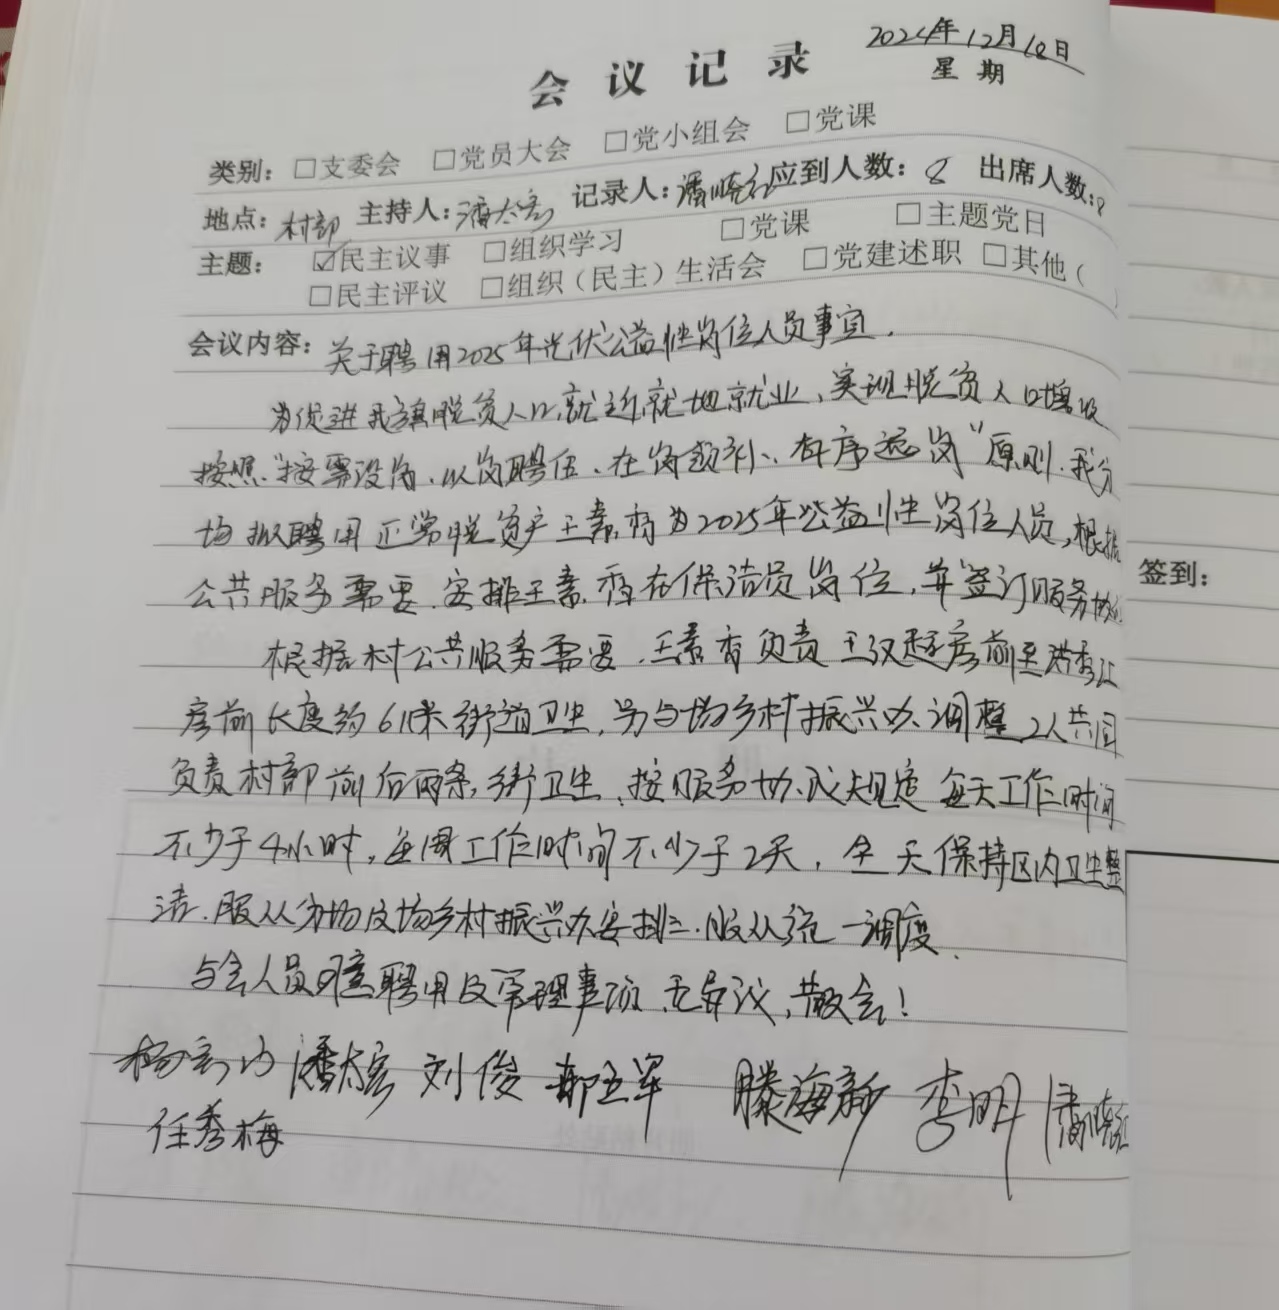 2024年12月18日
会议记录
星期
类别：□支委会 □党员大会 □党小组会 □党课
地点：村部 主持人：潘太宏 记录人：潘晓红 应到人数：8 出席人数：8
主题：☑民主议事 □组织学习 □党课 □主题党日
□民主评议 □组织（民主）生活会 □党建述职 □其他（
会议内容：关于聘用2025年光伏公益性岗位人员事宜.
为促进我旗脱贫人口就近就地就业，实现脱贫人口增收
按照"按需设岗、以岗聘任、在岗领补、有序退岗"原则.我分
场拟聘用正常脱贫户王素香为2025年公益性岗位人员，根据
公共服务需要.安排王素香在保洁员岗位，并签订服务协
签到：
根据村公共服务需要.王素香负责王汉超房前至
房前长度约611米街道卫生，另与场乡村振兴办调整2人共同
负责村部前后两条街卫生、按服务协议规定每天工作时间
不少于4小时，每周工作时间不少于2天，全天保持区内卫生整
洁.服从分场及场乡村振兴办安排.服从统一调度.
与会人员对聘用及管理事项无异议，散会！
潘太宏 刘俊 滕海新 李明 潘晓红
任秀梅